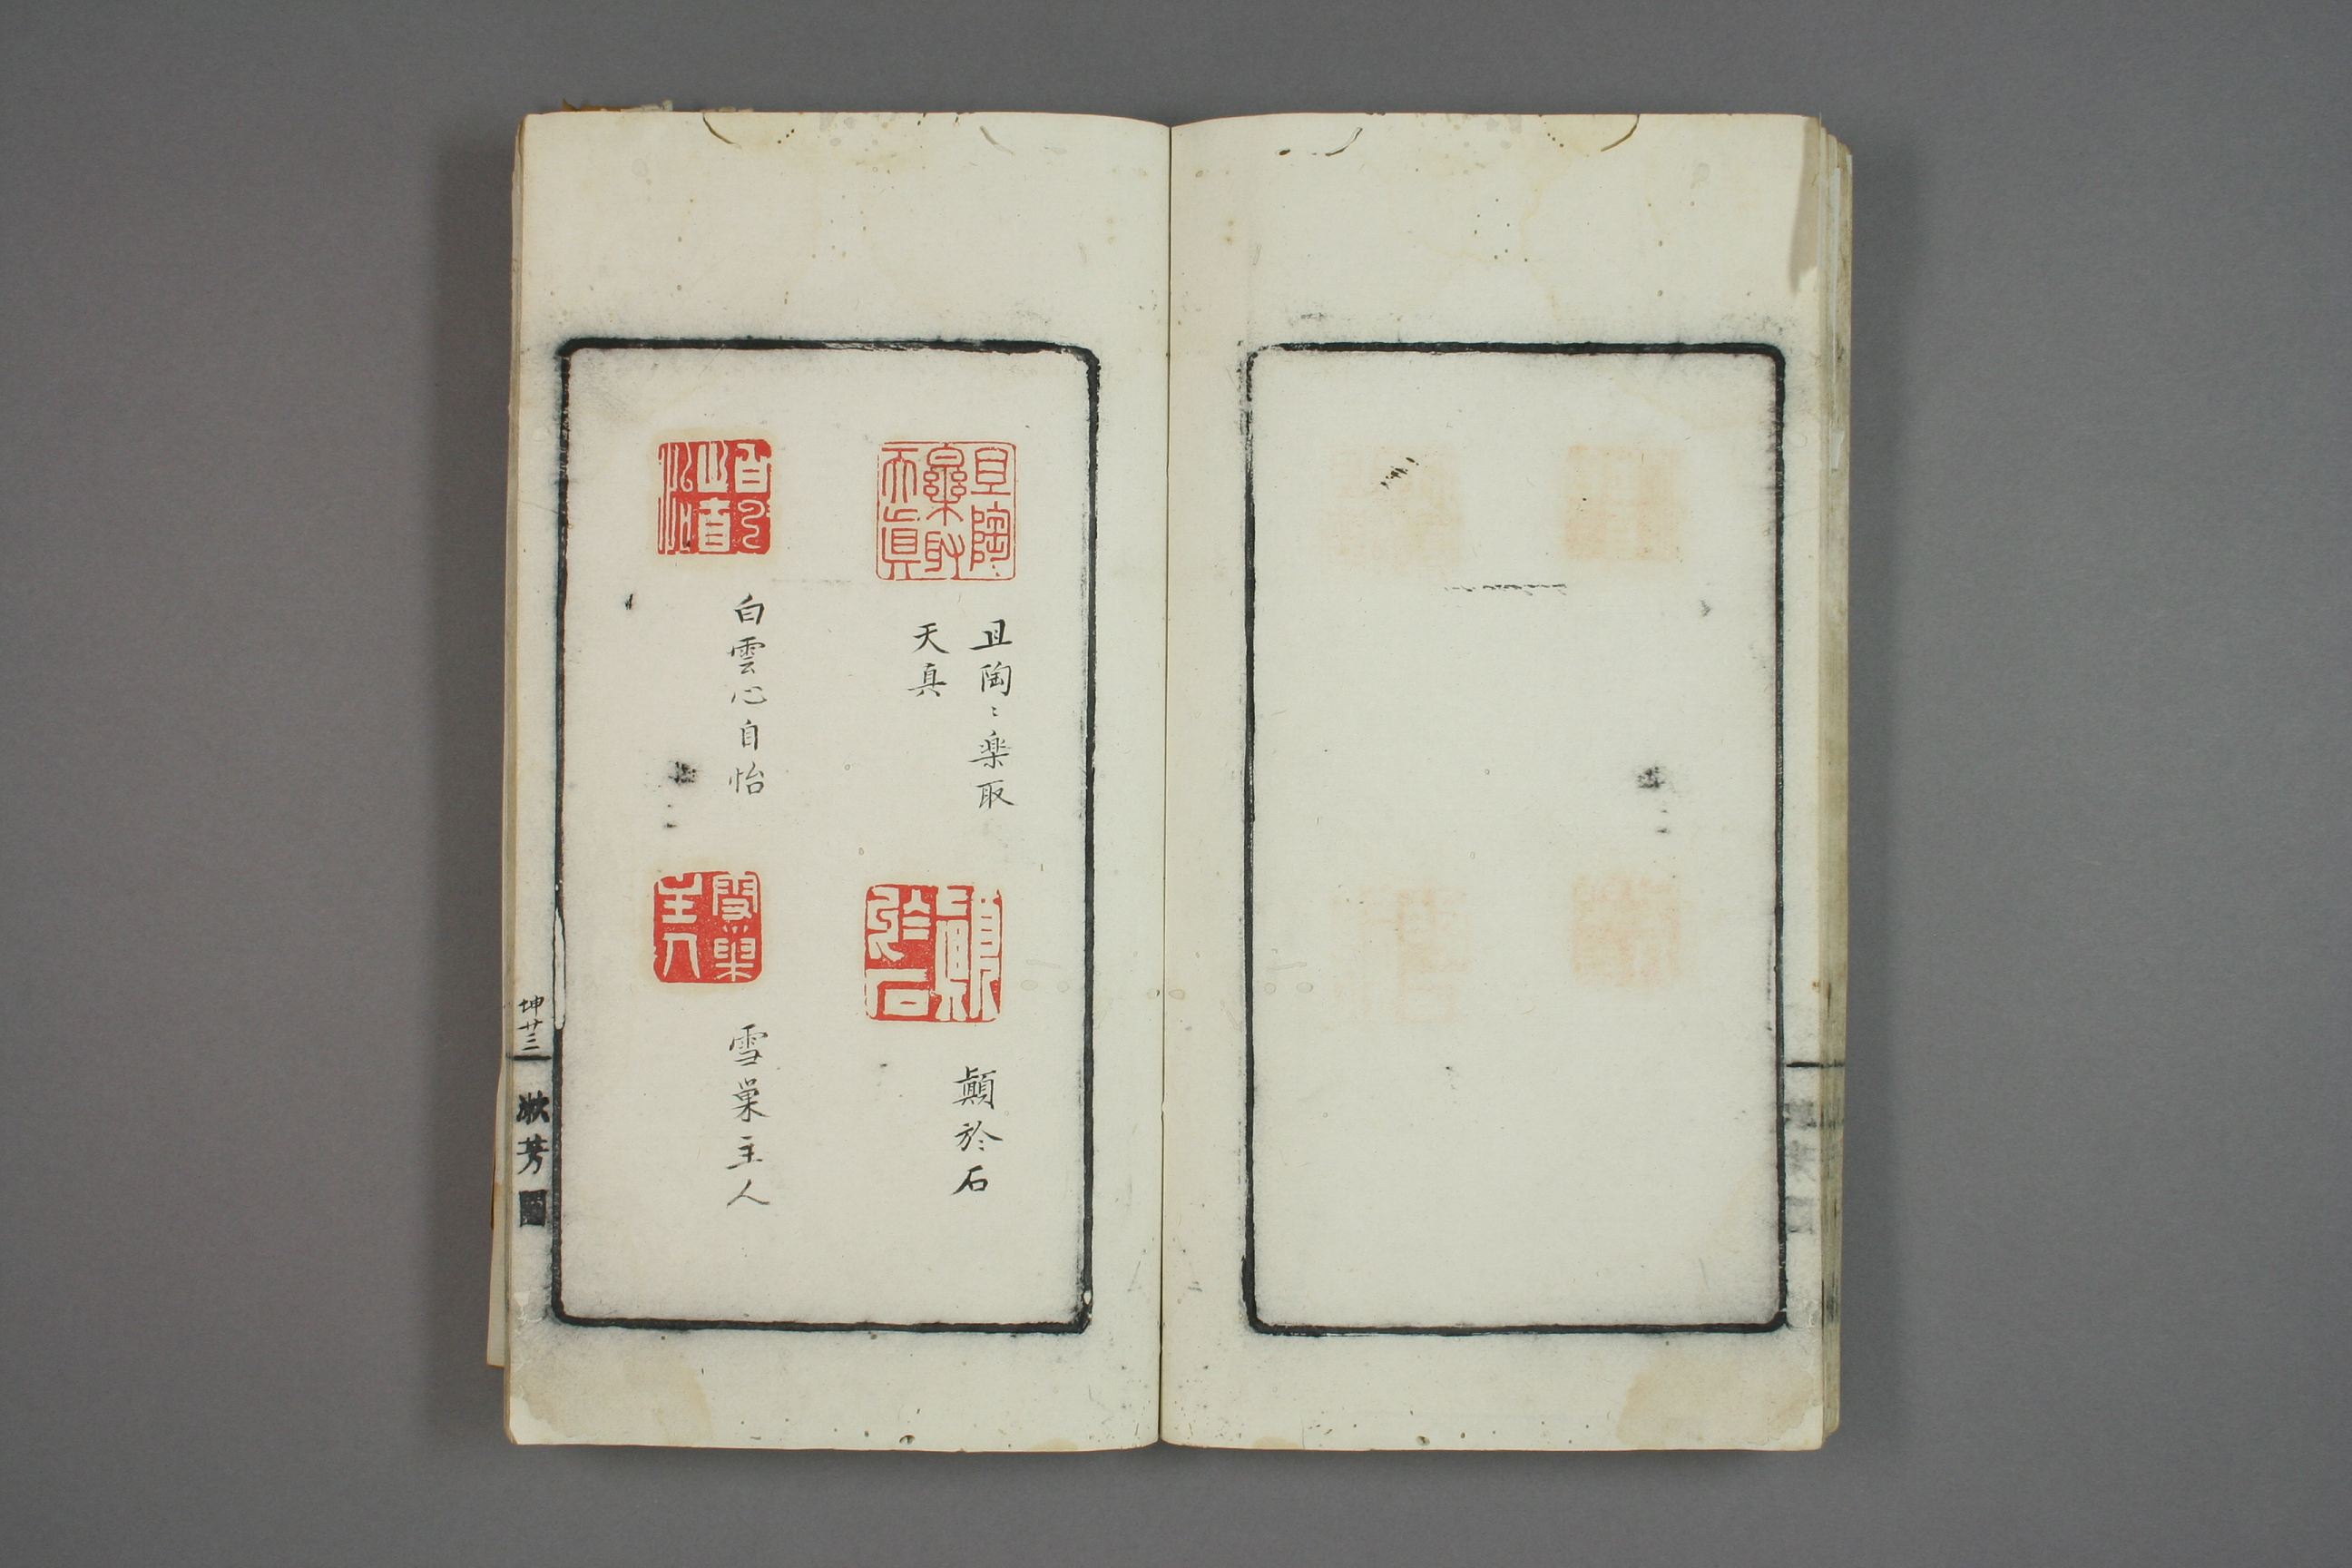 且陶〻楽取
天真
顚於石
白雲心自怡
雪巣主人
坤廿三
漱芳